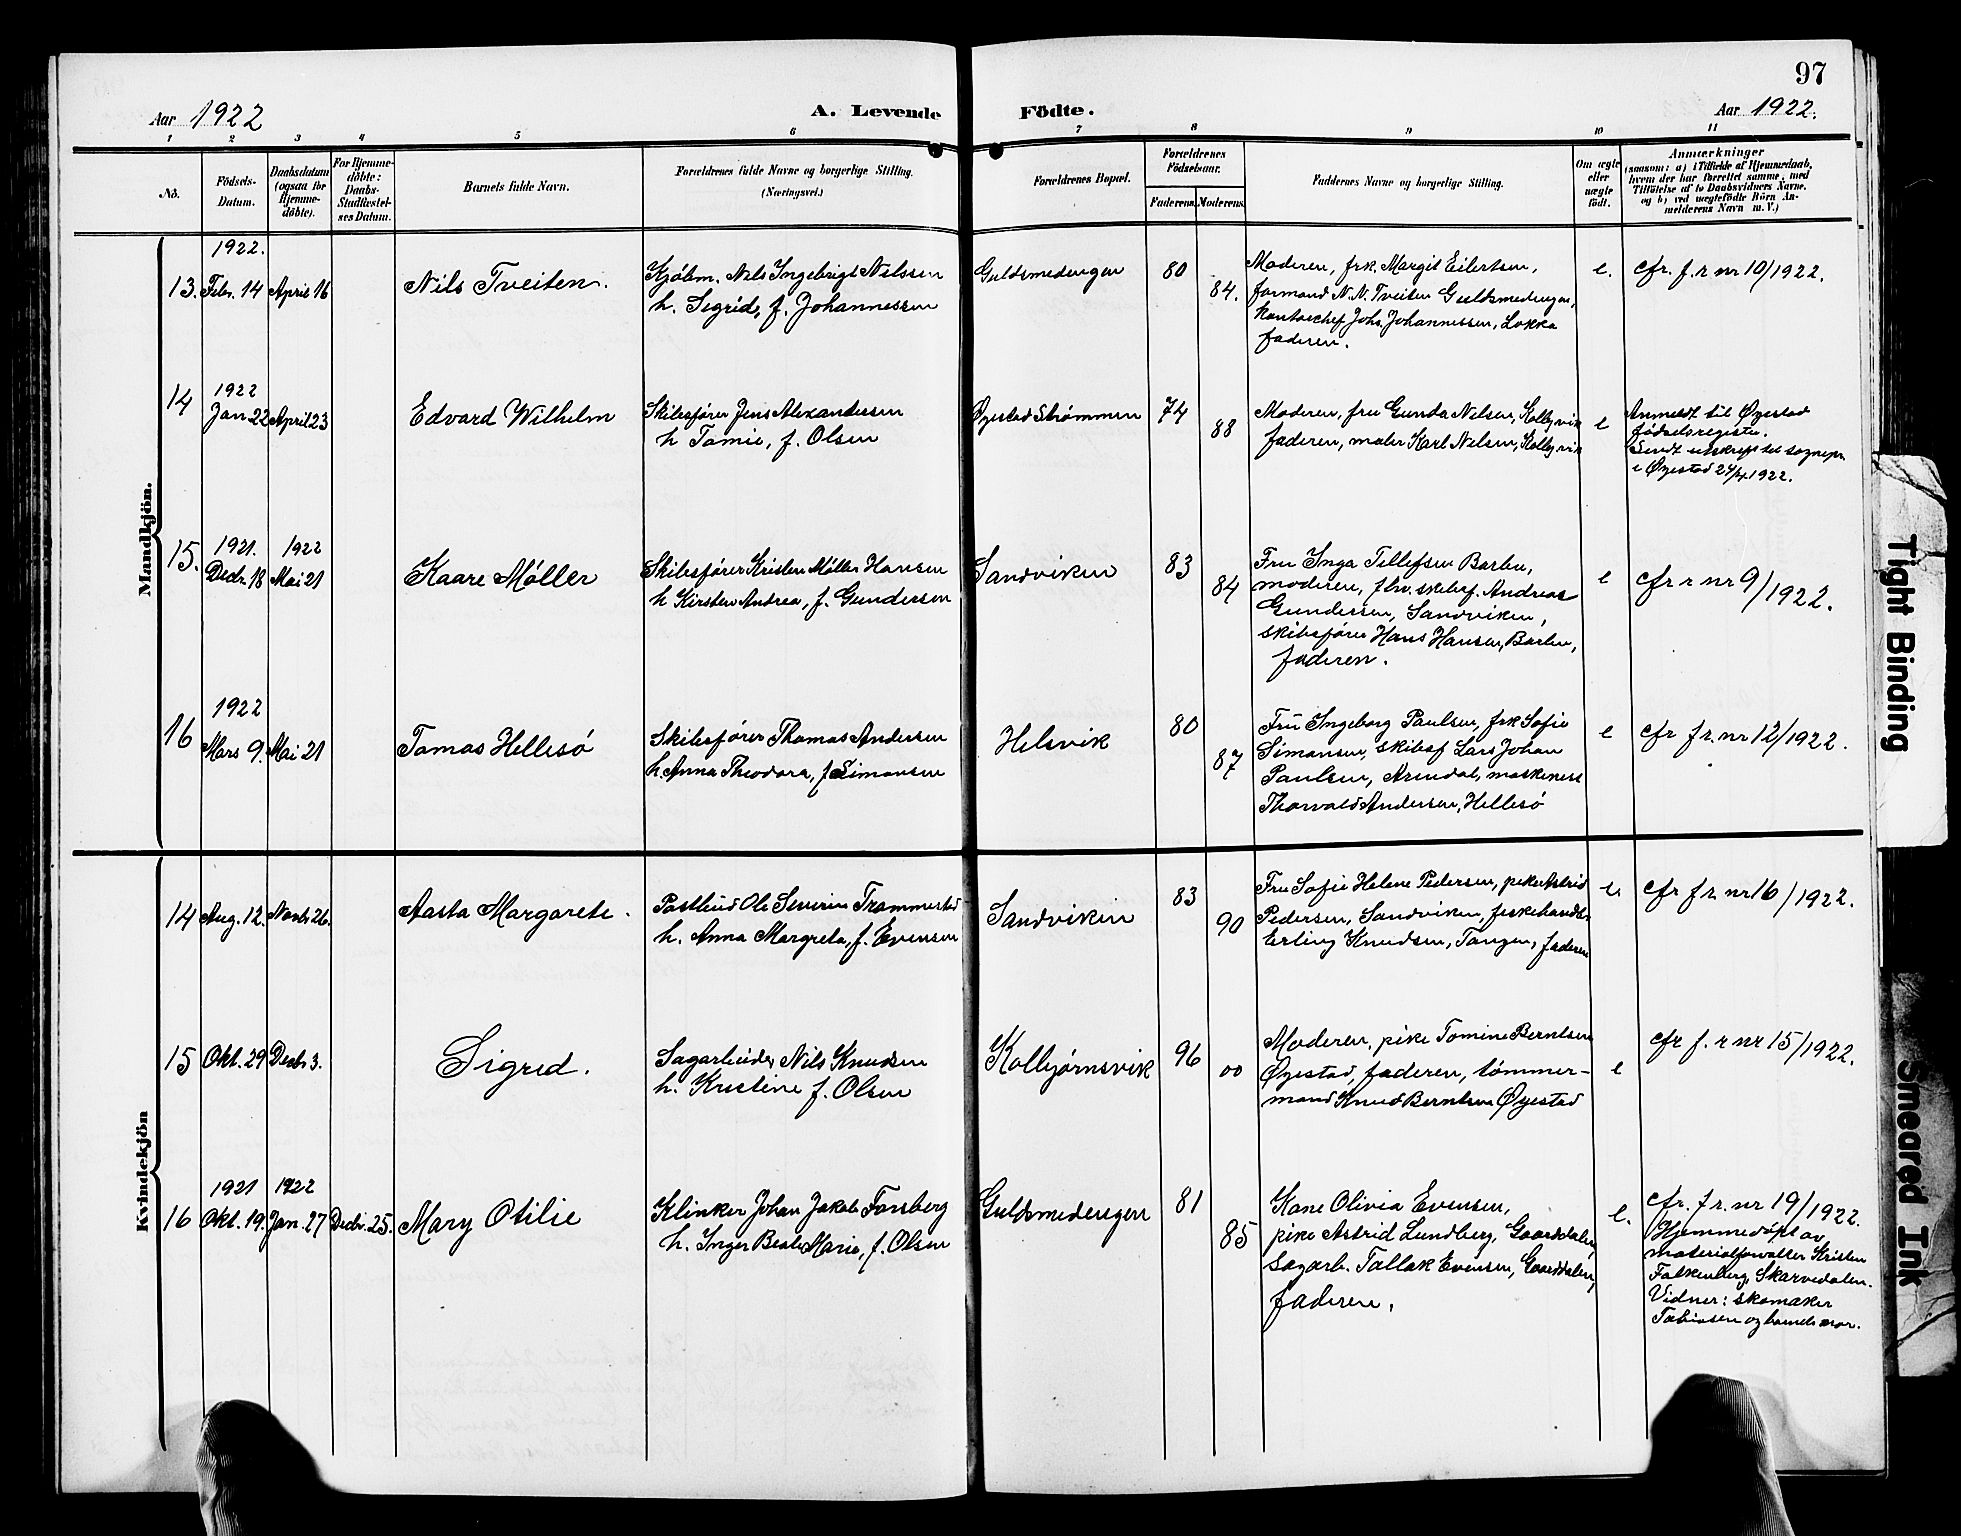 97
Aar 1922
A. Levende
Födte.
Aar 1922.
1 2 3 4 5 6 7 8 9 10 11
No.
Födsels-
Datum.
Daabsdatum
(ogsaa for
Hjemme-
döbte).
For Hjemme-
döbte:
Daabs-
Stadfæstel-
ses Datum.
Barnets fulde Navn.
Forældrenes fulde Navne og borgerlige Stilling.
(Næringsvei.)
Forældrenes Bopæl.
Forældrenes
Födselsaar.
Faderens. Moderens.
Faddernes Navne og borgerlige Stilling.
Om ægte
eller
uægte
födt.
Anmærkninger
(saasom: a) i Tilfælde af Hjemmedaab,
hvem der har forrettet samme, med
Tilföielse af to Daabsvidners Navne,
og b) ved uægtefödte Börn An-
melderens Navn m. V.)
Mandkjön.
1922.
13. Febr. 14 April 16
Nils Tveiten.
Kjøbm. Nils Ingebrigt Nilssen
h. Sigrid, f. Johannessen
Guldsmedengen
80
84.
Moderen, frk. Margit Eilertsen,
formand N. N. Tveiten Guldsmedengen,
kontorchef Johs. Johannessen, Lokka
faderen.
e.
cfr. f. r nr 10/1922.
1922
14 Jan 22 April 23
Edvard Wilhelm
Skibsfører Jens Alexandersen
h Tomie, f. Olsen
Øyestad Strømmen
74
88
Moderen, fru Gunda Nelsen, Kolbjvik
faderen, maler Karl Nelsen, Kolbjvik
e
Anmeldt til Øyestad
fødselsregister.
Sendt utskrift til sognepr.
i Øyestad 24/4 1922.
1921. 1922
15. Decbr. 18 Mai 21
Kaare Møller
Skibsfører Kristen Møller Hansen
h Kirsten Andrea, f. Gundersen
Sandviken
83
84
Fru Inga Tellefsen Barbu,
moderen, fhv. skibsf. Andreas
Gundersen, Sandviken,
skibsfører Hans Hansen, Barbu,
faderen.
e
cfr r nr 9/1922.
1922
16 Mars 9. Mai 21
Tomas Hellesø
Skibsfører Thomas Andersen
h. Anna Theodora, f. Simonsen
Helsvik
80
87
Fru Ingeborg Paulsen, frk Sofie
Simonsen, skibsf Lars Johan
Paulsen, Arendal, maskinist
Thorvald Andersen, Hellesø
e
cfr f r. nr 12/1922.
Kvindekjön
14 Aug. 12. Novbr 26.
Aasta Margarete.
Postbud Ole Severin Trommestad
h. Anna Margreta, f. Evensen
Sandviken
83
90
Fru Sofie Helene Pedersen, pike Astrid
Pedersen, Sandviken, fiskehandler
Erling Knudsen, Tangen, faderen
e.
cfr f r. nr 16/1922.
15 Okt. 29 Decbr 3.
Sigrid.
Sagarbeider Nils Knudsen
h. Kristine f. Olsen
Kolbjørnsvik
96
00
Moderen, pike Tomine Berntsen
Øyestad, faderen, tømmer-
mand Knud Berntsen Øyestad
e
cfr f. r nr 15/1922.
1921 1922
16 Okt. 19. Jan. 27 Decbr. 25.
Mary Otilie
Klinker Johan Jakob Forsberg
h. Inger Beate Marie, f. Olsen
Guldsmedengen
81
85
Kone Olivia Evensen,
pike Astrid Lundberg, Gaarddalen,
sagarb. Tallak Evensen, Gaarddalen,
faderen.
e.
cfr. f r. nr 19/1922.
Hjemmedøpt av
materialforvalter Kristen
Falkenberg, Skarvedalen.
Vidner: skomaker
Tobiasen og barnets mor.
Tight Binding
Smeared Ink